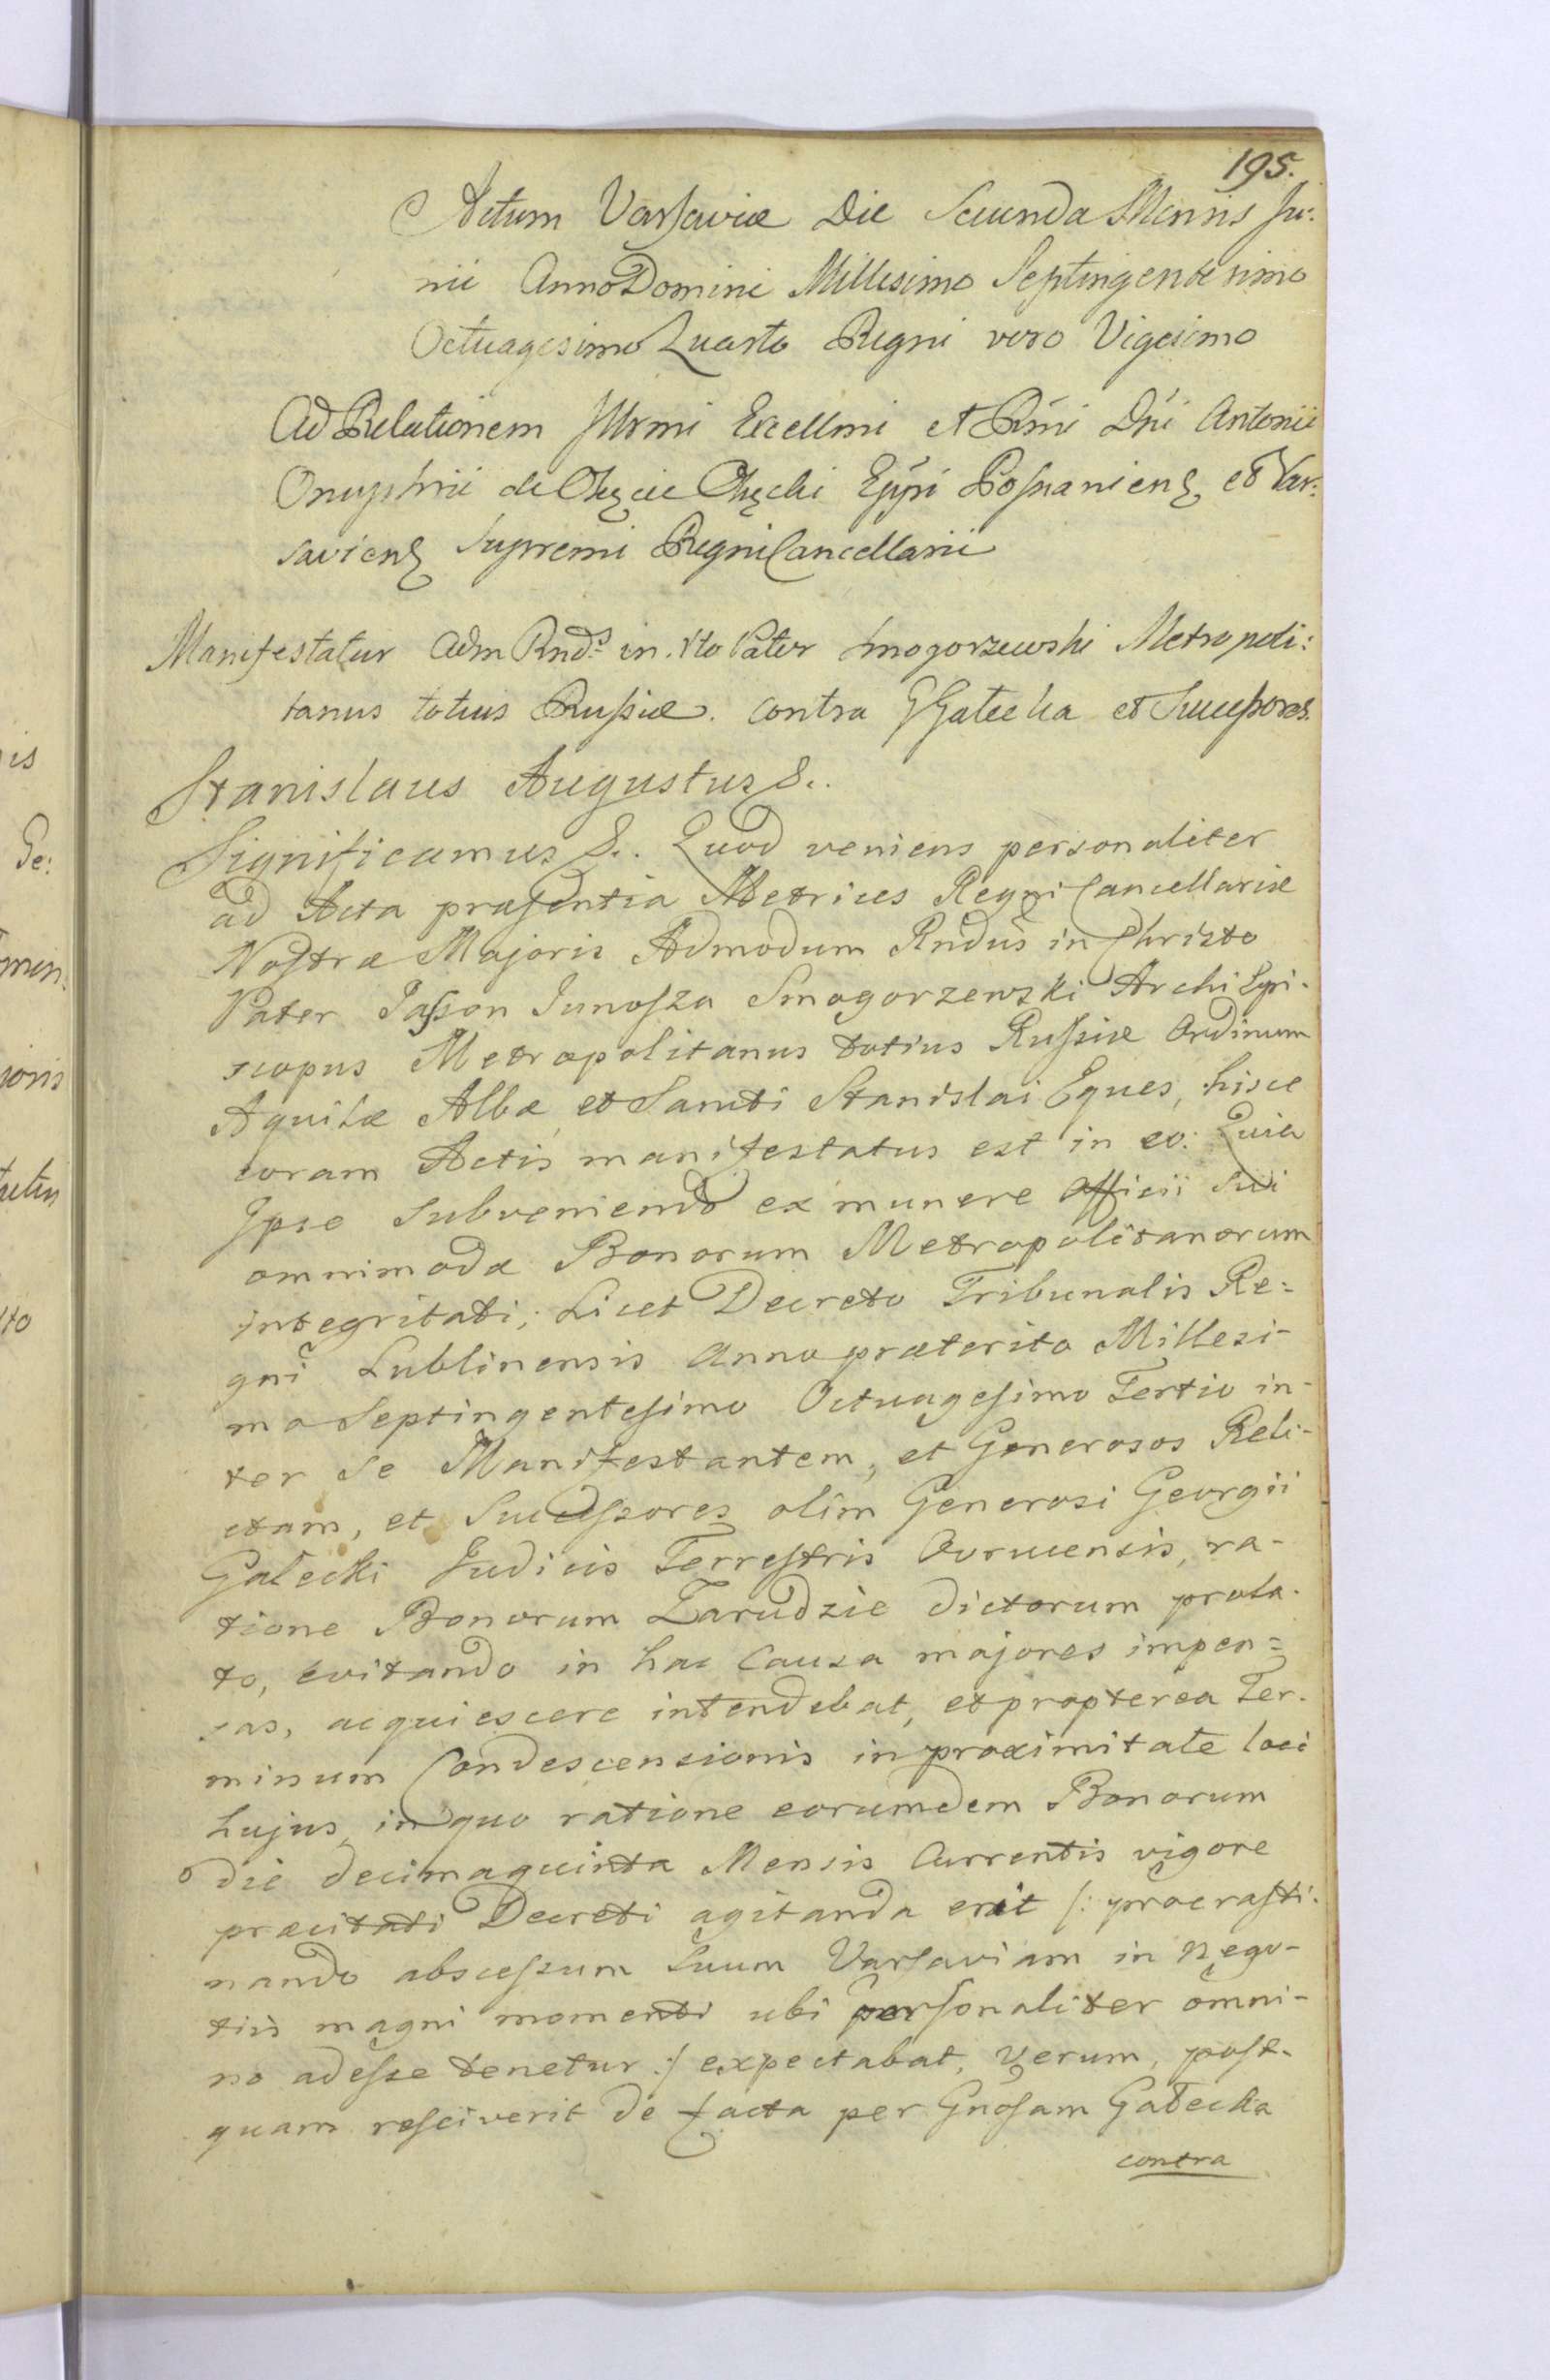 195.
Actum Varsaviæ Die Secunda Mensis Ju:
nii Anno Domini Millesimo Septingentesimo
Octuagesimo Quarto Regni vero Vigesimo
Ad Relationem Illrmi Excellmi et Rmi Dni Antonii
Onuphrii de Okęcie Okęcki Eppi Posnaniens et Var:
saviens Supremi Regni Cancellarii
Manifestatur Adm Rnds in Xto Pater Smogorzewski Metropoli:
tanus totius Russiæ. contra G Gałecka et Successores.
Stanislaus Augustus &.
Significamus &. Quod veniens personaliter
ad Acta præsentia Metrices Regni Cancellariæ
Nostræ Majoris Admodum Rndus in Christo
Pater Jasson Junosza Smogorzewski Archi Epi-
scopus Metropolitanus totius Russiæ Ordinum
Aquilæ Albæ et Sancti Stanislai Eques, hisce
coram Actis manifestatus est in eo: Quia
Ipse Subveniendo ex munere Officii Sui
omnimodæ Bonorum Metropolitanorum
integritati, Licet Decreto Tribunalis Re=
gni Lublinensis Anno præterito Millesi-
mo Septingentesimo Octuagesimo Tertio in-
ter Se Manifestantem, et Generosos Reli-
ctam, et Successores olim Generosi Georgii
Gałecki Judicis Terrestris Ovrucensis, ra-
tione Bonorum Zarudzie dictorum prola-
to, evitando in hac Causa majores impen=
sas, acquiescere intendebat, et propterea Ter-
minum Condescensionis in proximitate loci
hujus, in quo ratione eorumdem Bonorum
die decima quinta Mensis Currentis vigore
præcitati Decreti agitanda erit /: procrasti-
nando abscessum Suum Varsaviam in Nego-
tiis magni momenti ubi personaliter omni-
no adesse tenetur :/ expectabat, verum, post-
quam resciverit de facta per Gnosam Gałecka
contra
is
Ge: